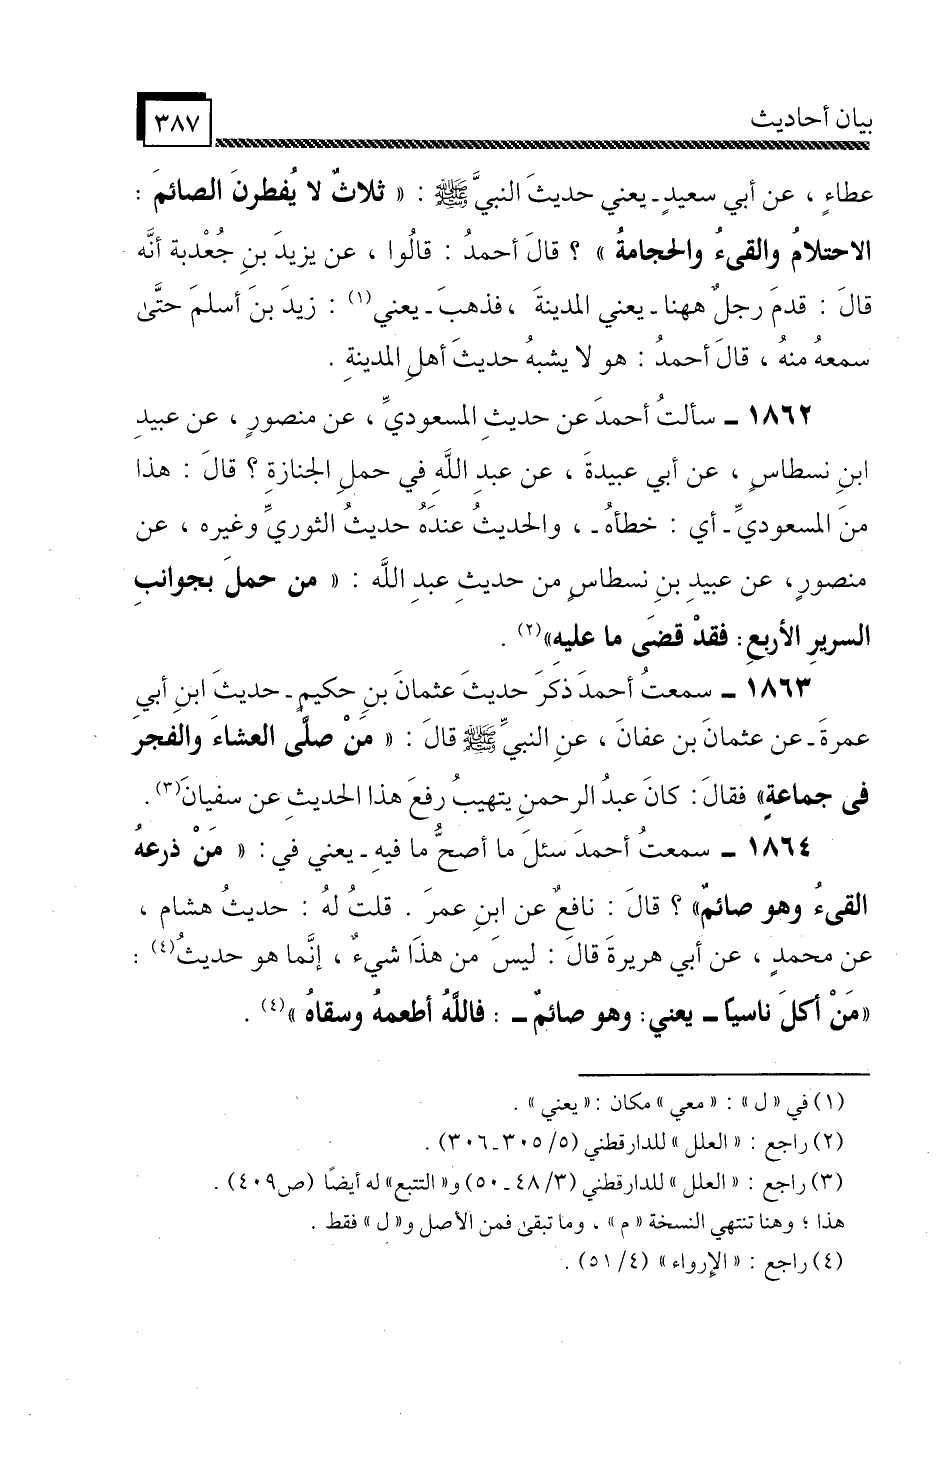 بيان أحاديث
٣٨٧
عطاءٍ ، عن أبي سعيدٍ ـ يعني حديثَ النبيَّ ﷺ : « ثلاثٌ لا يُفطرنَ الصائمَ :
الاحتلامُ والقىءُ والحجامةُ » ؟ قالَ أحمدُ : قالُوا ، عن يزيدَ بنِ جُعْدبة أنَّه
قالَ : قدمَ رجلٌ ههنا ـ يعني المدينةَ ، فذهبَ ـ يعني(١) : زيدَ بنَ أسلمَ حتَّىٰ
سمعهُ منهُ ، قالَ أحمدُ : هو لا يشبهُ حديثَ أهلِ المدينةِ .
١٨٦٢ ـ سألتُ أحمدَ عن حديثِ المسعوديِّ ، عن منصورٍ ، عن عبيدِ
ابنِ نسطاسٍ ، عن أبي عبيدةَ ، عن عبدِ اللَّهِ في حملِ الجنازةِ ؟ قالَ : هذا
منَ المسعوديِّ ـ أي : خطأهُ ـ ، والحديثُ عندَهُ حديثُ الثوريِّ وغيره ، عن
منصورٍ، عن عبيدِ بنِ نسطاسٍ من حديثِ عبدِ اللَّه : « من حملَ بجوانبِ
السريرِ الأربعِ : فقدْ قضَى ما عليه»(٢) .
١٨٦٣ ـ سمعتُ أحمدَ ذكرَ حديثَ عثمانَ بنِ حكيمٍ ـ حديثَ ابنِ أبي
عمرةَ ـ عن عثمانَ بن عفانَ ، عنِ النبيِّ ﷺ قالَ : « مَنْ صلَّى العشاءَ والفجر
فى جماعةٍ» فقالَ : كانَ عبدُ الرحمنِ يتهيبُ رفعَ هذا الحديثِ عن سفيانَ(٣) .
١٨٦٤ ـ سمعتُ أحمدَ سئلَ ما أصحُّ ما فيهِ ـ يعني في : « مَنْ ذرعهُ
القىءُ وهو صائمٌ» ؟ قالَ : نافعٌ عن ابنِ عمرَ . قلتُ لهُ : حديثُ هشام ،
عن محمدٍ ، عن أبي هريرةَ قالَ : ليسَ من هذَا شيءٌ ، إنَّما هو حديثُ(٤) :
«مَنْ أكلَ ناسياً ـ يعني : وهو صائمٌ ـ : فاللَّهُ أطعمهُ وسقاهُ »(٤) .
(١) في « ل » : « معي » مكان : « يعني » .
(٢) راجع : « العلل » للدارقطني (٥/ ٣٠٥ ـ ٣٠٦) .
(٣) راجع : « العلل » للدارقطني (٣/ ٤٨ ـ ٥٠) و« التتبع» له أيضًا (ص٤٠٩) .
هذا ؛ وهنا تنتهي النسخة « م » ، وما تبقىٰ فمن الأصل و« ل » فقط .
(٤) راجع : « الإرواء » (٤/ ٥١) .